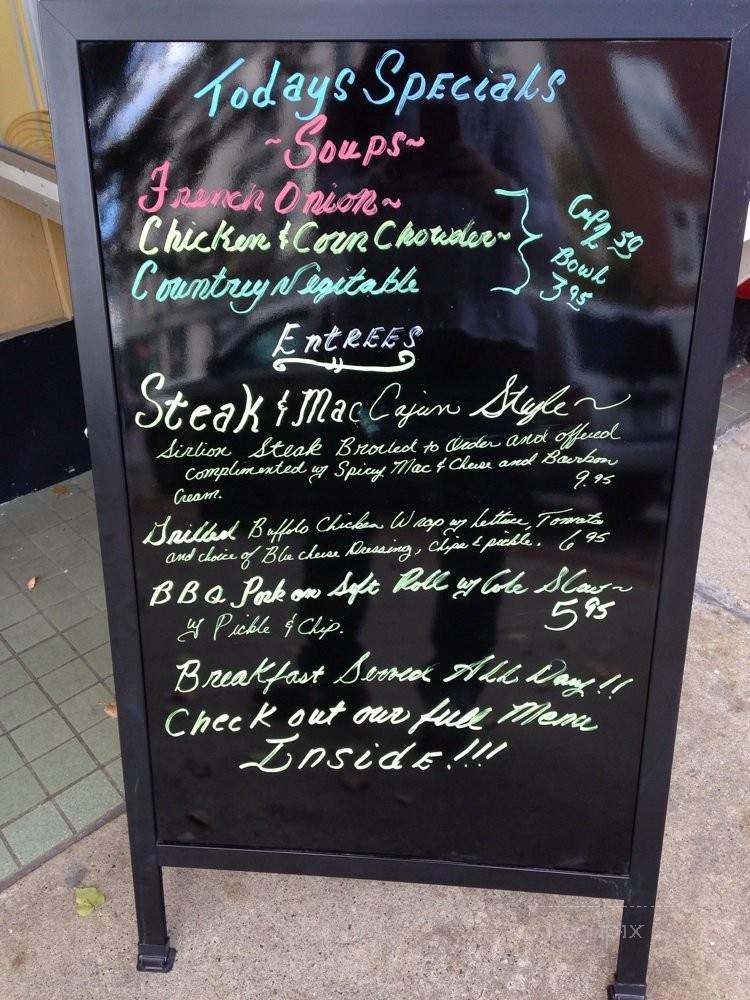 Todays Specials
~Soups~
French Onion~
Chicken & Corn Chowder~
Country Vegitable
Cup
2 50
Bowl
3 95
Entrees
Steak & Mac Cajun Style~
Sirlion Steak Broiled to Order and offered
complimented w/ Spicy Mac & Cheese and Bourbon
Cream.
9.95
Grilled Buffalo Chicken Wrap w/ Lettuce, Tomato
and choice of Blue cheese Dressing, chips & pickle. 6 95
BBQ Pork on Soft Roll w/ Cole Slaw~
5 95
w/ Pickle & Chip.
Breakfast Served All Day!!
Check out our full Menu
Inside!!!